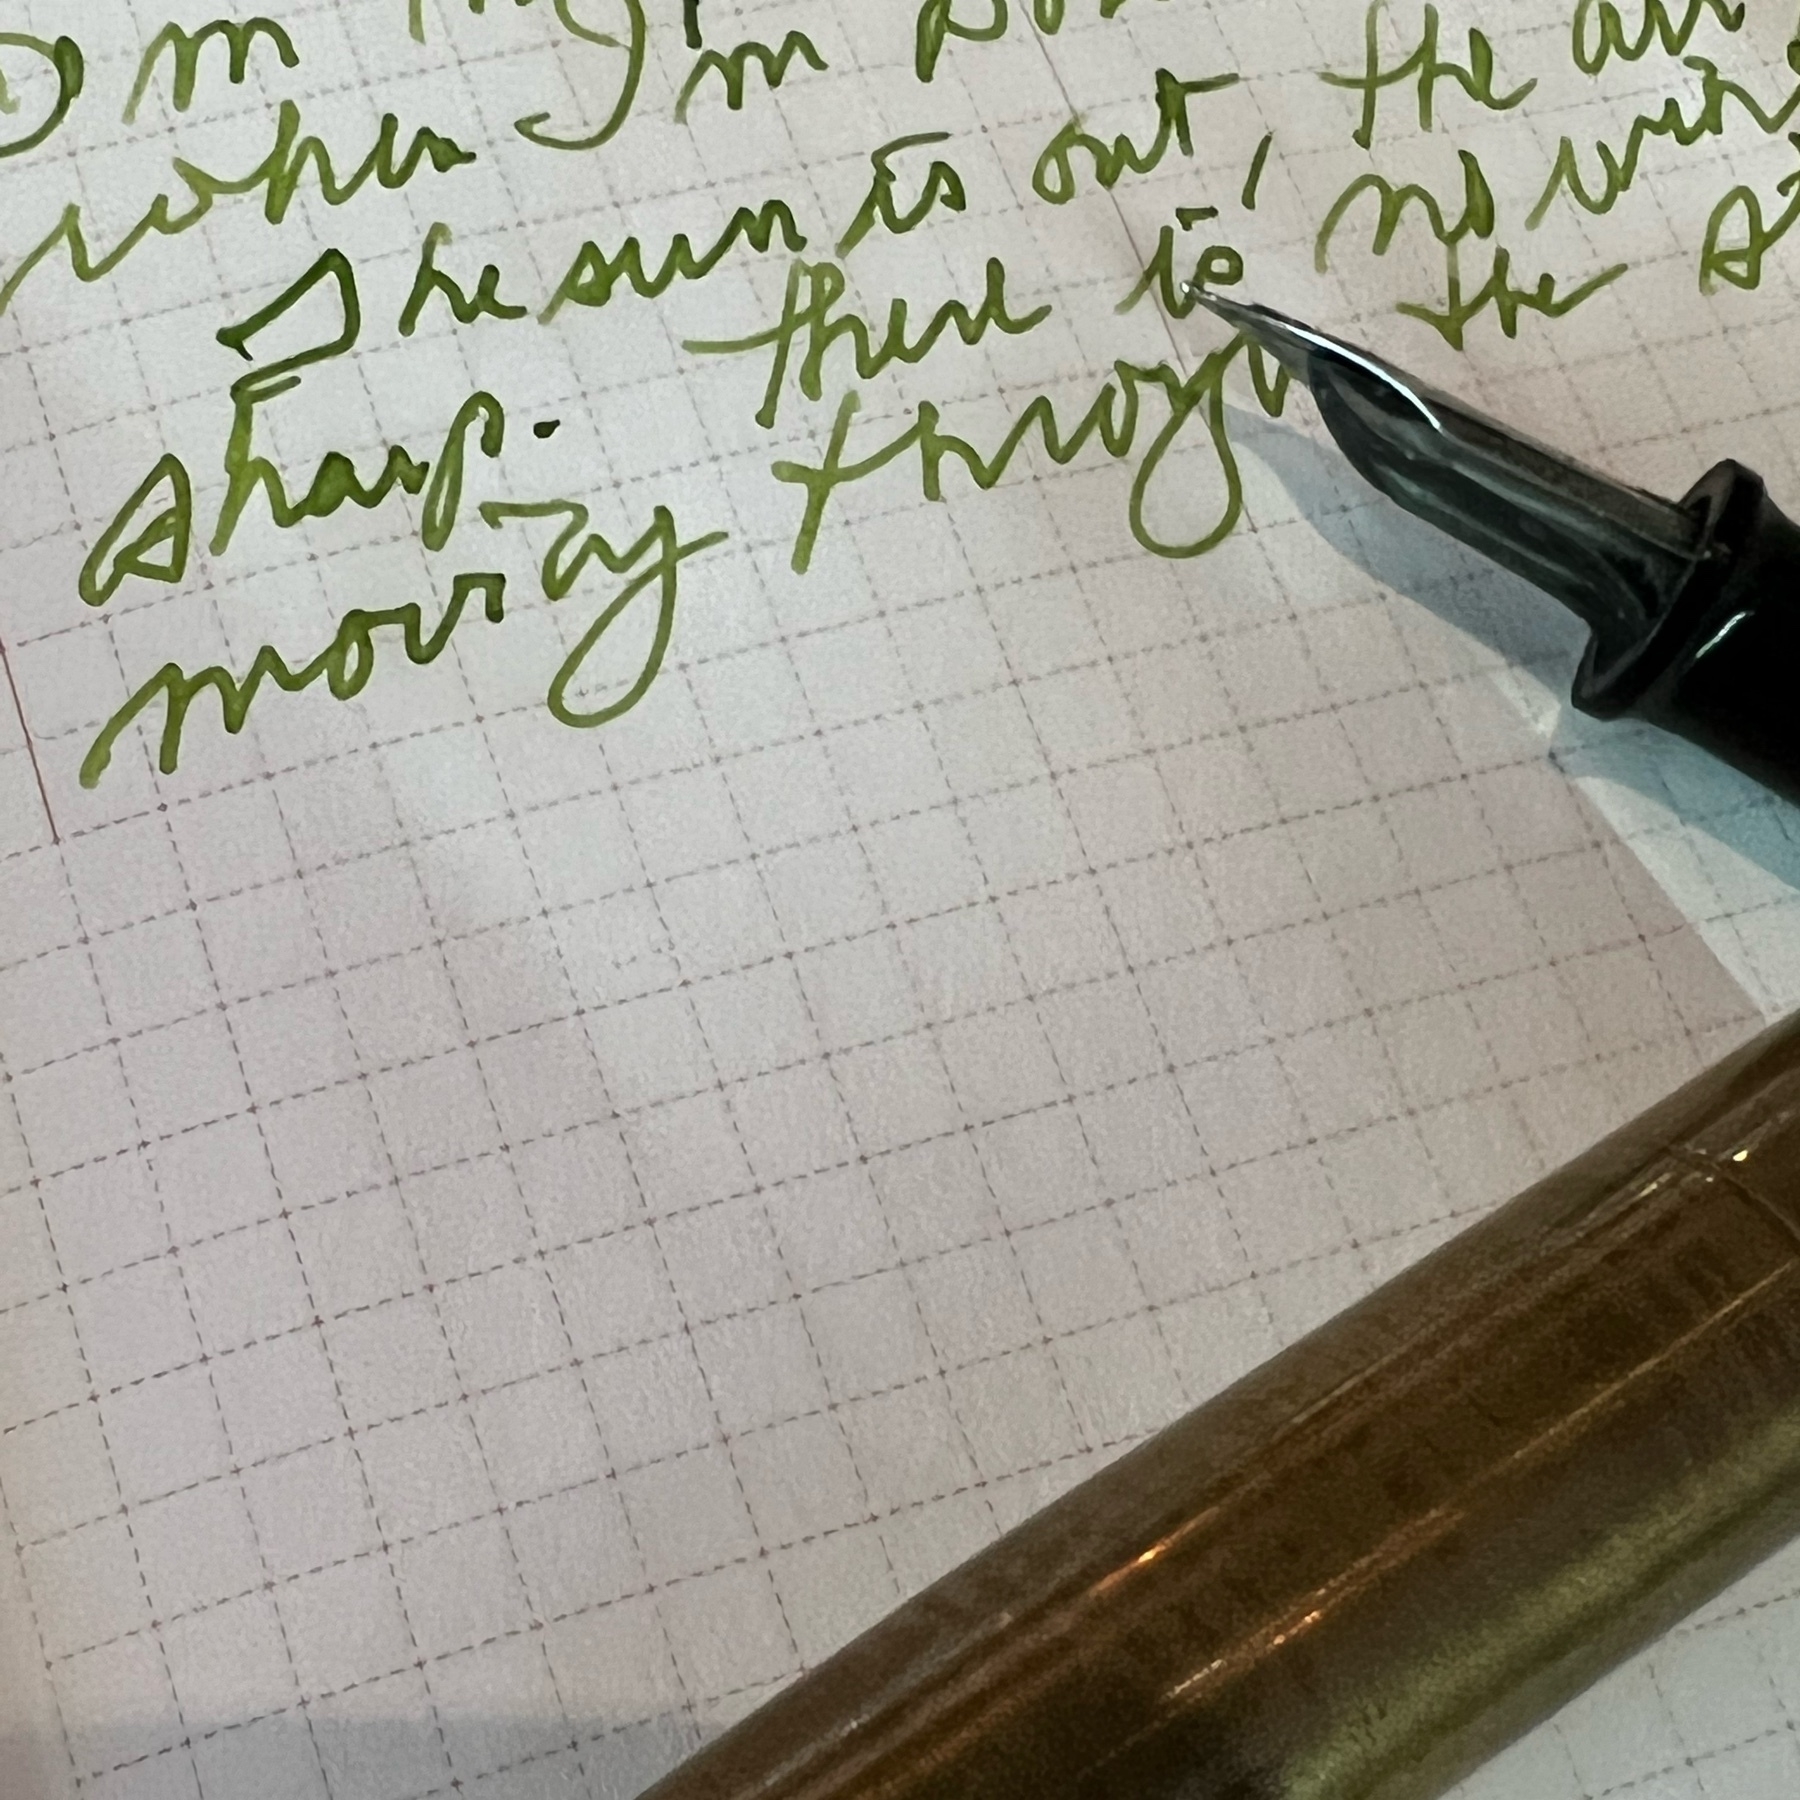 when I'm
The sun is out, the air
sharp. there is no wind
moving through the